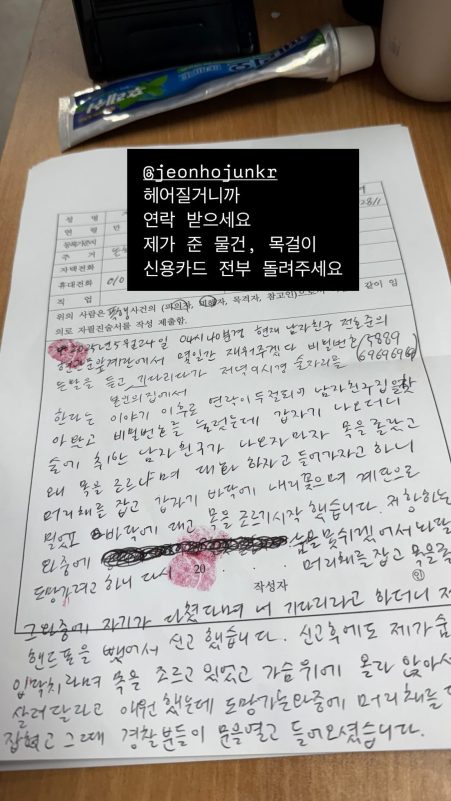 @jeonhojunkr
헤어질거니까
연락 받으세요
제가 준 물건, 목걸이
신용카드 전부 돌려주세요
성 명
연 령 만
등록기준지
주 거
자택전화
휴대전화 010
직 업
위의 사람은 폭행사건의 (피의자, 피해자, 목격자, 참고인)으로서 다음과 같이 임
의로 자필진술서를 작성 제출함.
2025년 5월 24일 04시 나이경 현재 남자친구 전호준의
며칠간 재워주겠다 비밀번호 (5889
는 말을 듣고 기다리다가 저녁 9시경 술자리를 69696969)
본인의 집에서
한다는 이야기 이후로 연락이 두절되어 남자친구집을 찾
아 왔고 비밀번호를 눌렀는데 갑자기 나오더니
술에 취한 남자친구가 나오자마자 목을 졸랐고
왜 목을 조르냐며 대화 하자고 들어가자고 하니
머리채를 잡고 갑자기 바닥에 내리꽂으며 계단으로
밀었고 바닥에 대고 목을 조르기 시작 했습니다. 저항하는
와중에 숨을 못쉬겠어서
도망가려고 하니 다시 20 . . . 머리채를 잡고 목을
작성자 ㊞
그 와중에 자기가 다쳤다며 나 기다리라고 하더니 제
핸드폰을 뺏어서 신고 했습니다. 신고후에도 제가 숨
입닥치라며 목을 조르고 있었고 가슴위에 올라 앉아서
살려달라고 애원 했는데 도망가는 와중에 머리채를
잡혔고 그때 경찰분들이 문을 열고 들어오셨습니다.